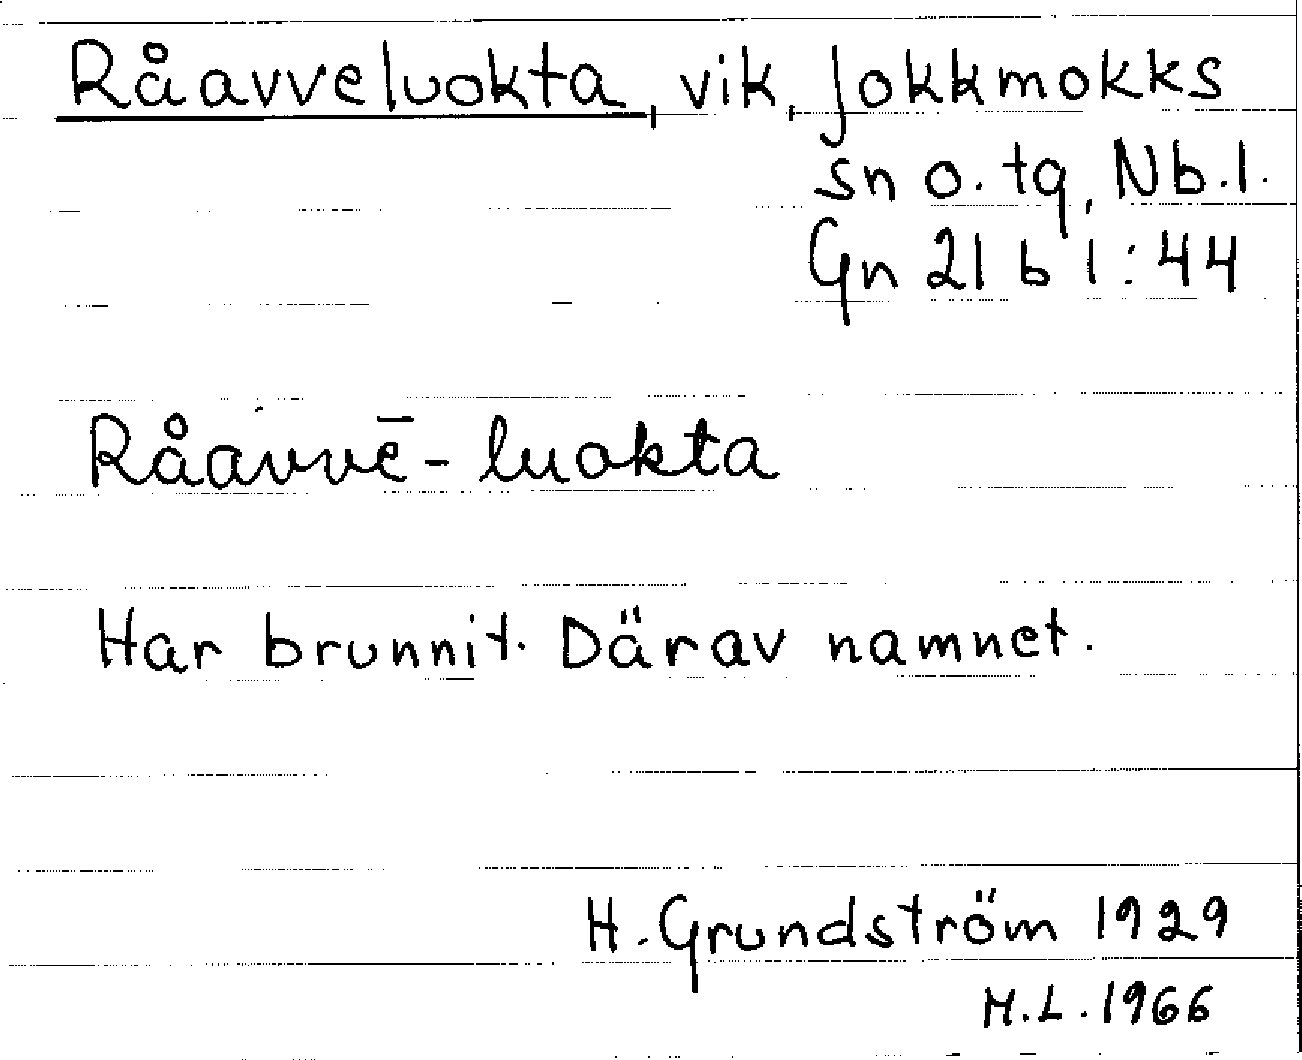 Råavveluokta, vik, Jokkmokks
sn o. tg, Nb.l.
Gn 21 b 1:44
Råavvē-luokta
Har brunnit. Därav namnet.
H. Grundström 1929
M.L. 1966